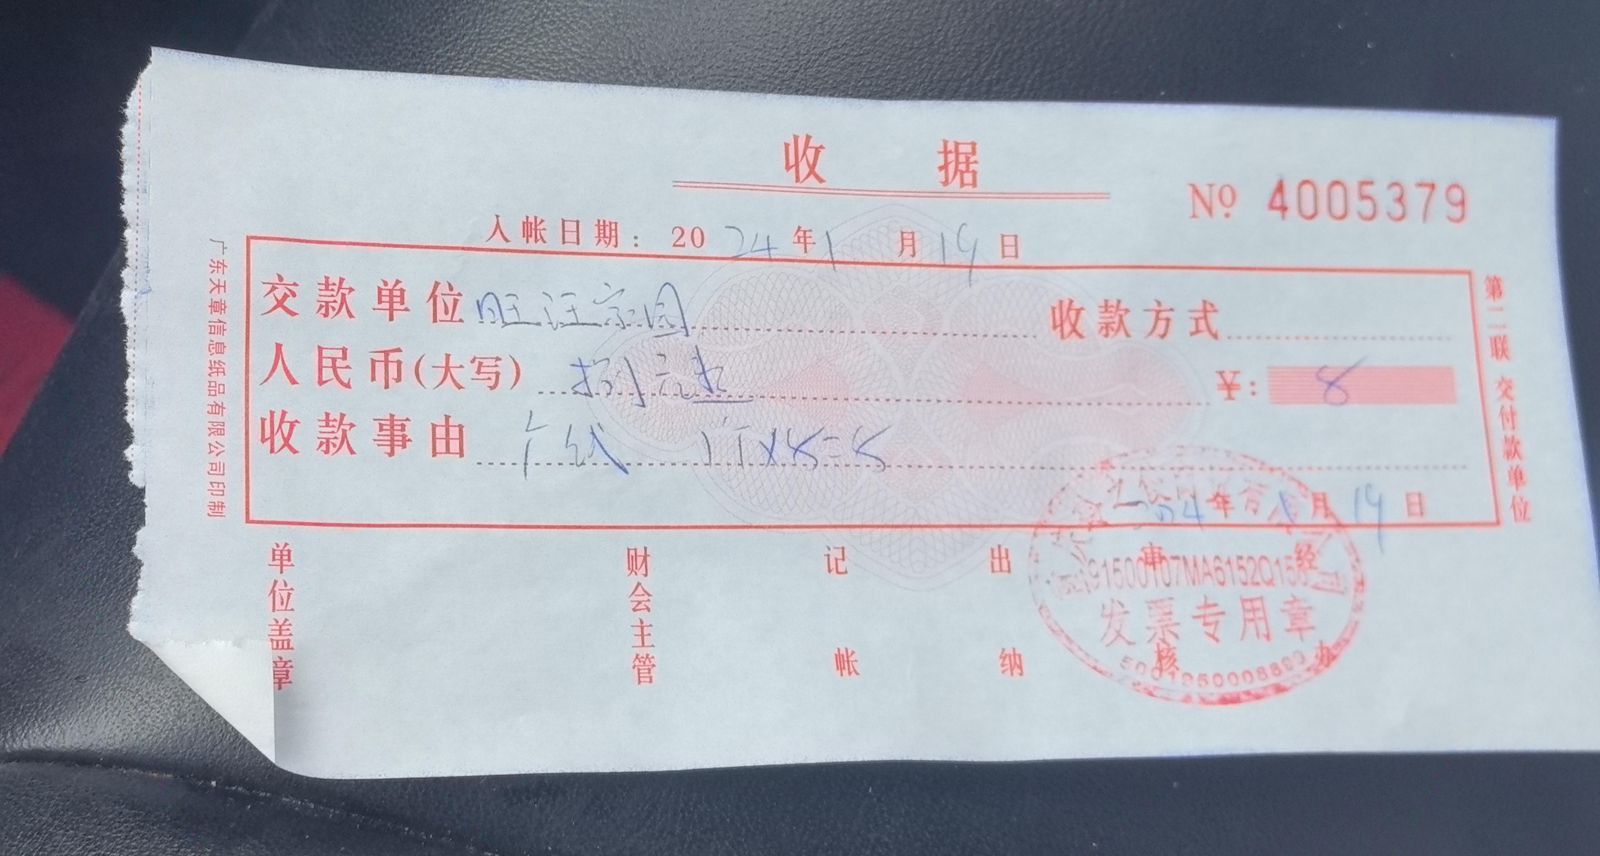 收 据
No 4005379
入帐日期: 2024年1月19日
交款单位 旺汪家园 收款方式
人民币(大写) 捌元整 ¥: 8
收款事由
2024年1月19日
单位盖章 财会主管 记帐 出纳 审核 经办
发票专用章
第二联 交付款单位
广东天章信息纸品有限公司印制